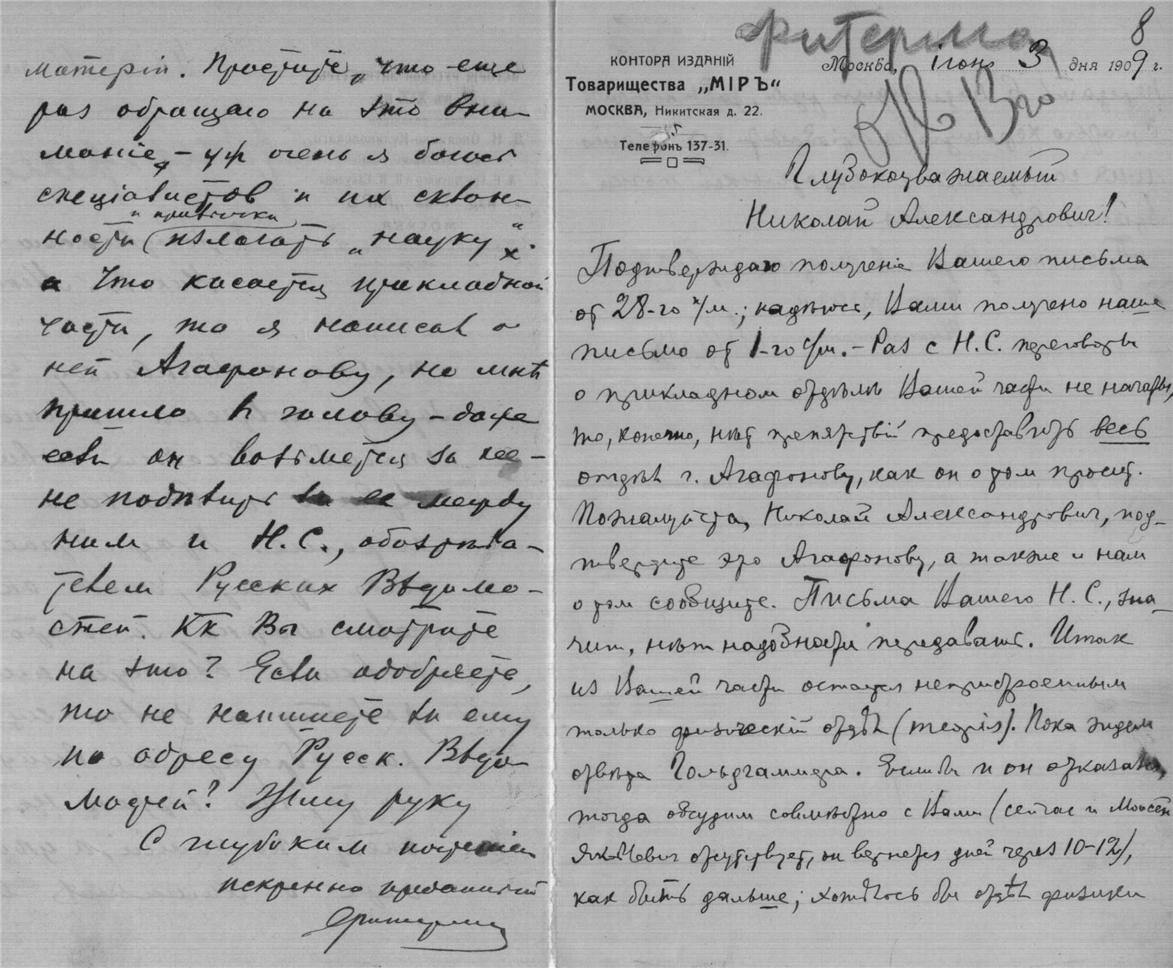 матеріи. Простите, что еще
раз обращаю на это вни-
маніе, - уж очень я боюсь
спеціалистов и их склон-
и привычки
ности излагать „науку“.
Что касается прикладной
части, то я написал о
ней Агафонову, но мнѣ
пришло в голову -
если он возьмется за нее -
не подѣлить между
ним и Н.С., обозрѣва-
телем Русских Вѣдомо-
стей. Кк Вы смотрите
на это? Если одобряете,
то не напишете ли ему
по адресу Русск. Вѣдо-
мостей? Жму руку
С глубоким почтеніем
искренно преданный
8
Фитерман
КОНТОРА ИЗДАНІЙ
Товарищества „МІРЪ“
МОСКВА, Никитская д. 22.
Телефонъ 137-31.
Москва, іюня 3 дня 1909 г.
Глубокоуважаемый
Николай Александрович!
Подтверждаю полученіе Вашего письма
от 28-го п/м.; надѣюсь, Вами получено наше
письмо от 1-го с/м. - Раз с Н.С. переговоры
о прикладном отдѣлѣ Вашей части не начаты,
то, конечно, нѣт препятствій предоставить весь
отдѣл г. Агафонову, как он о том просит.
Пожалуйста, Николай Александрович, под-
твердите это Агафонову, а также и нам
о том сообщите. Письма Вашего Н.С., зна-
чит, нѣт надобности передавать. Итак
из Вашей части остается непристроенным
только физическій отдѣл (теорія). Пока ждем
отвѣта Гольдгаммера. Если бы и он отказался,
тогда обсудим совмѣстно с Вами (сейчас и Моисей
Яковлевич отсутствует, он вернется дней через 10-12),
как быть дальше; хотѣлось бы отдѣл физики